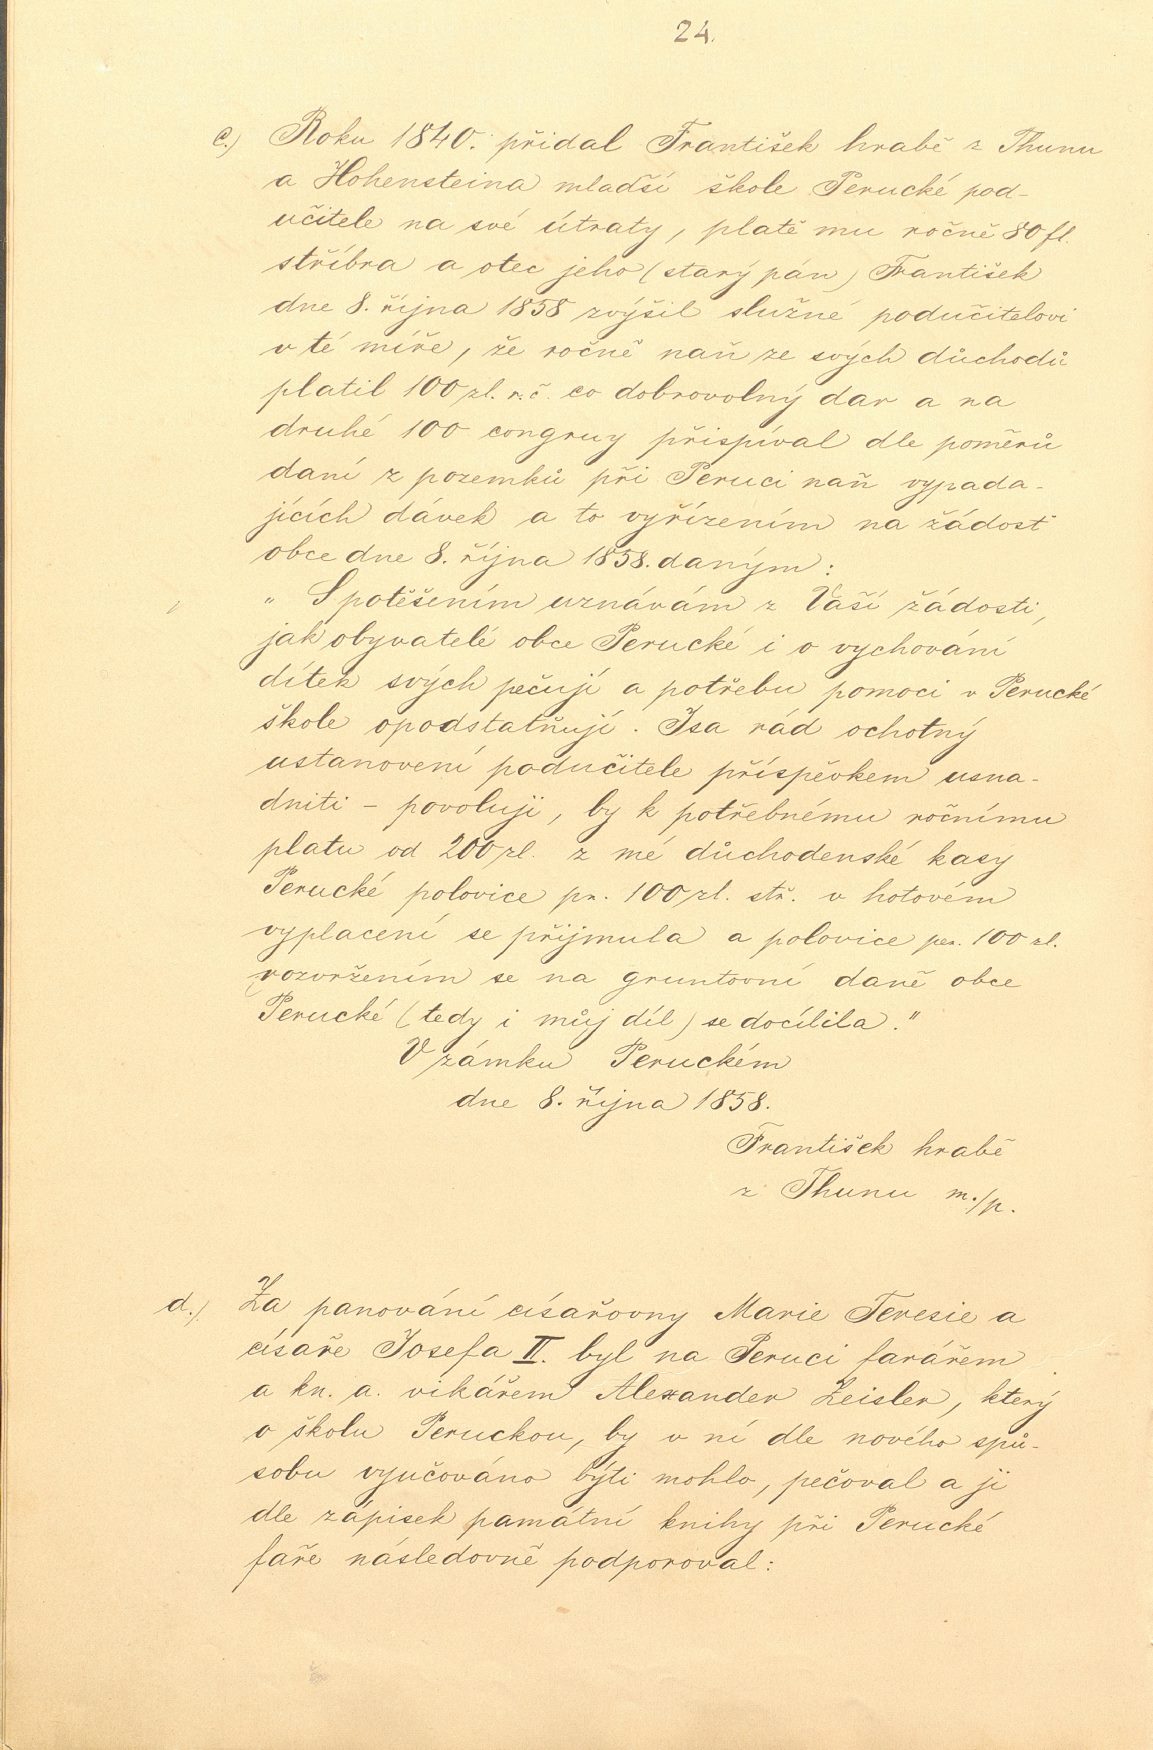 24.
c.) Roku 1840. přidal František hrabě z Thunu
a Hohensteina mladší škole Perucké pod-
učitele na své útraty, platě mu ročně 80 fl.
stříbra a otec jeho (starý pan) František
dne 8. října 1858 zvýšil služné podučitelovi
v té míře, že ročně naň ze svých důchodů
platil 100 zl. r. č. co dobrovolný dar a na
druhé 100 congruy přispíval dle poměrů
daní z pozemků při Peruci naň vypada-
jících dávek a to vyřízením na žádosť
obce dne 8. října 1858. daným:
„S potěšením uznávám z Vaší žádosti,
jak obyvatelé obce Perucké i o vychování
dítek svých pečují a potřebu pomoci v Perucké
škole opodstatňují. Jsa rád ochotný
ustanovení podučitele příspěvkem usna-
dniti – povoluji, by k potřebnému ročnímu
platu od 200 zl. z mé důchodenské kasy
Perucké polovice pr. 100 zl. stř. v hotovém
vyplacení se přijmula a polovice per. 100 zl.
rozvržením se na gruntovní daně obce
Perucké (tedy i můj díl) se docílila."
V zámku Peruckém
dne 8. října 1858.
František hrabě
z Thunu m./p.
d.) Za panování císařovny Marie Teresie a
císaře Josefa II. byl na Peruci farářem
a kn. a. vikářem Alexander Zeisler, který
o školu Peruckou, by v ní dle nového spů-
sobu vyučováno býti mohlo, pečoval a ji
dle zápisek památní knihy při Perucké
faře následovně podporoval: